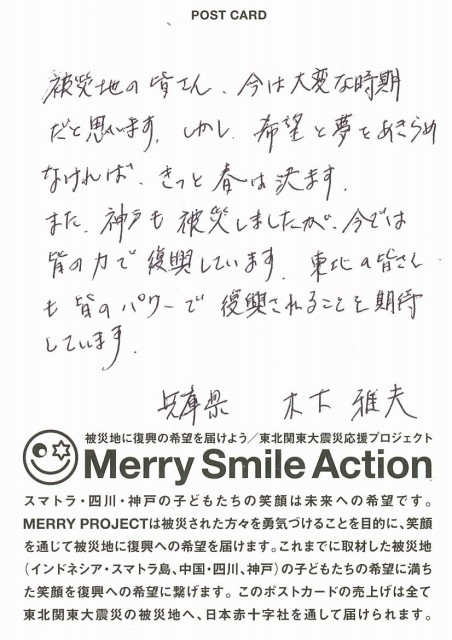 POST CARD
被災地の皆さん、今は大変な時期
だと思います。しかし、希望と夢をあきらめ
なければ、きっと春は来ます。
また、神戸も被災しましたが、今では
皆の力で復興しています。東北の皆さん
も皆のパワーで復興されることを期待
しています。
兵庫県 木下 雅夫
被災地に復興の希望を届けよう／東北関東大震災応援プロジェクト
Merry Smile Action
スマトラ・四川・神戸の子どもたちの笑顔は未来への希望です。
MERRY PROJECTは被災された方々を勇気づけることを目的に、笑顔
を通じて被災地に復興への希望を届けます。これまでに取材した被災地
（インドネシア・スマトラ島、中国・四川、神戸）の子どもたちの希望に満ち
た笑顔を復興への希望に繋げます。このポストカードの売上げは全て
東北関東大震災の被災地へ、日本赤十字社を通して届けられます。